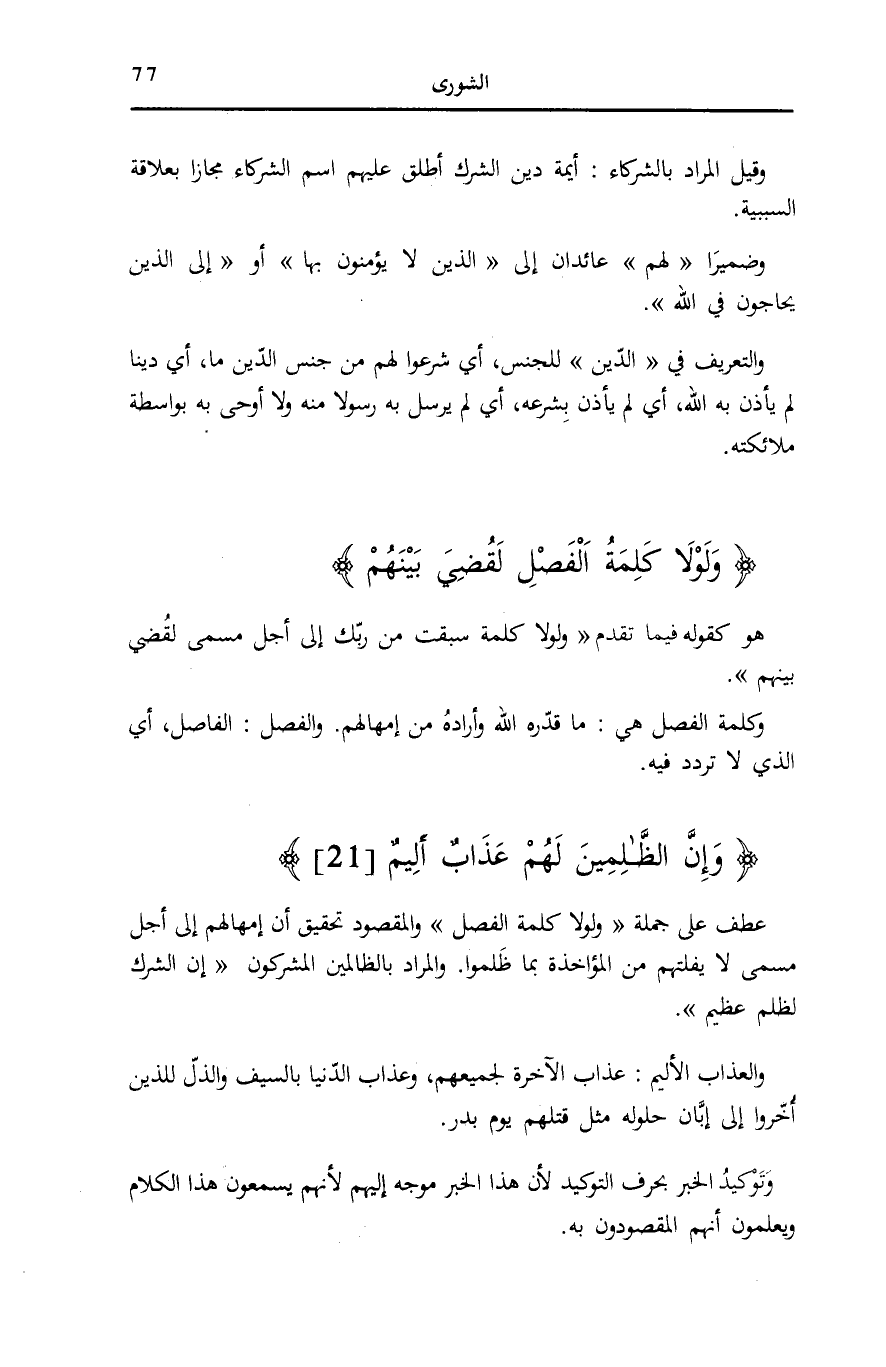 77
الشورى
وقيل المراد بالشركاء : أيمة دين الشرك أطلق عليهم اسم الشركاء مجازا بعلاقة
السببية.
وضميرَا « لهم » عائدان إلى « الذين لا يؤمنون بها » أو « إلى الذين
يحاجون في الله ».
والتعريف في « الدّين » للجنس، أي شرعوا لهم من جنس الدّين ما، أي دينا
لم يأذن به الله، أي لم يأذن بِشرعه، أي لم يرسل به رسولا منه ولا أوحى به بواسطة
ملائكته.
﴿ وَلَوْلَا كَلِمَةُ اَلْفَصْلِ لَقُضِيَ بَيْنَهُمْ ﴾
هو كقوله فيما تقدم « ولولا كلمة سبقت من ربّك إلى أجل مسمى لقُضي
بينهم ».
وكلمة الفصل هي : ما قدّره الله وأرادهُ من إمهالهم. والفصل : الفاصل، أي
الذي لا تردد فيه.
﴿ وَإِنَّ الظَّٰلِمِينَ لَهُمْ عَذَابٌ أَلِيمٌ [21] ﴾
عطف على جملة « ولولا كلمة الفصل » والمقصود تحقيق أن إمهالهم إلى أجل
مسمى لا يفلتهم من المؤاخذة بما ظَلموا. والمراد بالظالمين المشركون « إن الشرك
لظلم عظيم ».
والعذاب الأليم : عذاب الآخرة لجميعهم، وعذاب الدّنيا بالسيف والذلّ للذين
أُخّروا إلى إبَّان حلوله مثل قتلهم يوم بدر.
وَتَوْكيدُ الخبر بحرف التوكيد لأن هذا الخبر موجه إليهم لأنهم يسمعون هذا الكلام
ويعلمون أنهم المقصودون به.